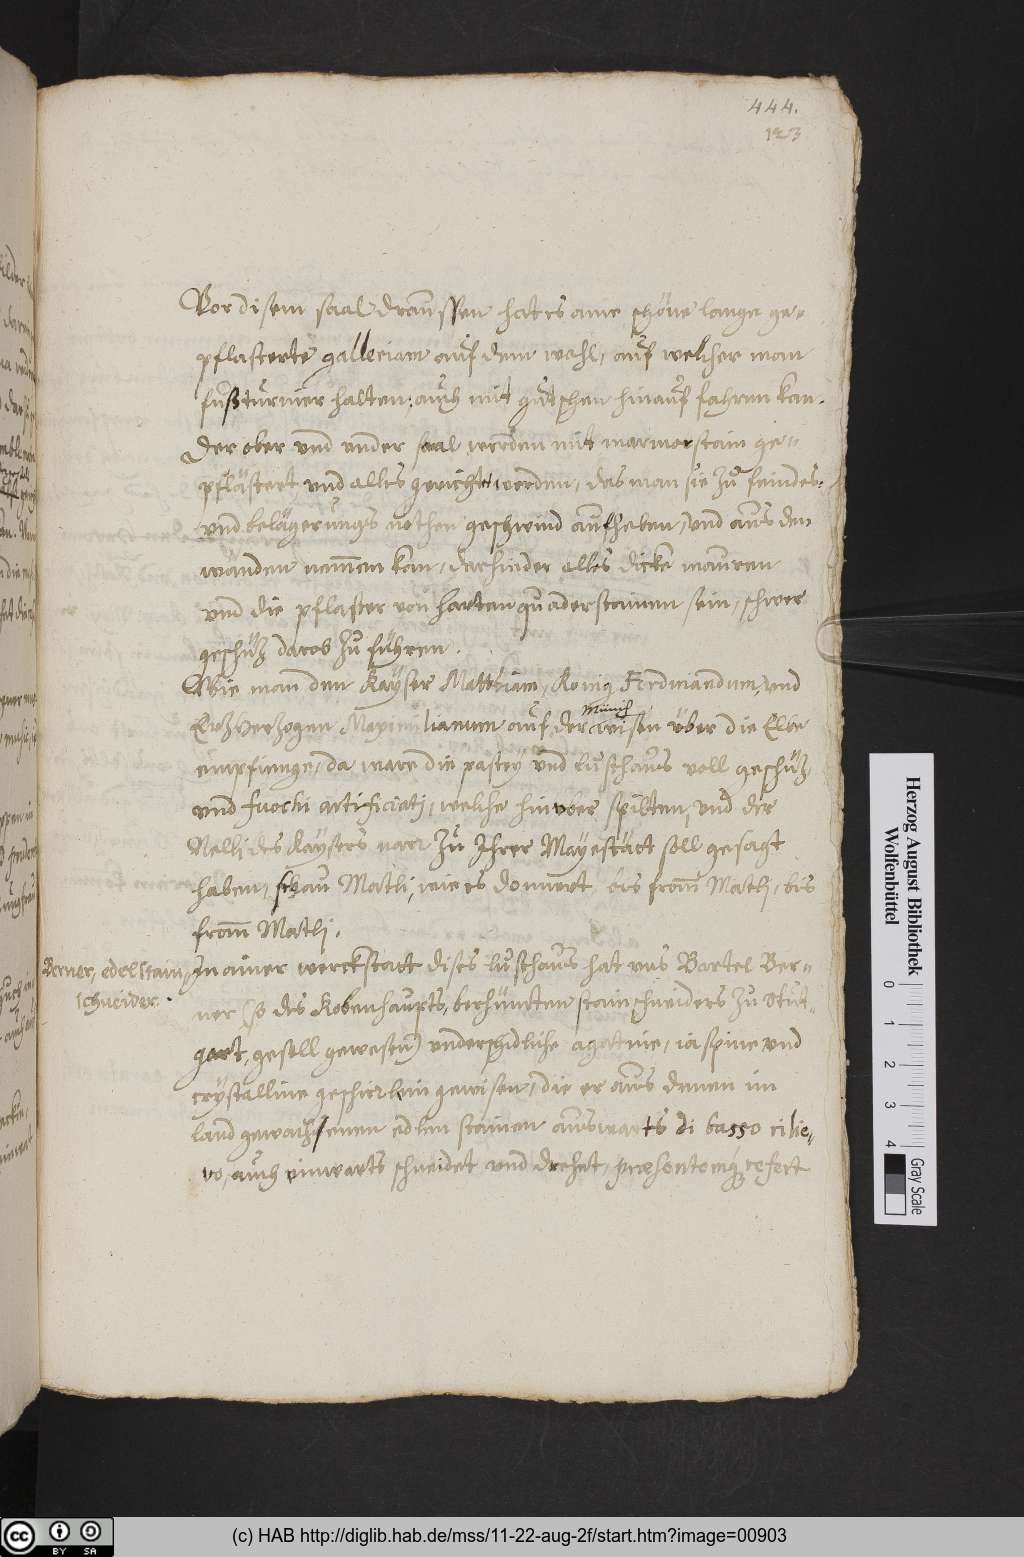 444.
123
Vor disem saal draussen hat es aine schöne lange ge-
pflasterte galleriam auf dem wahl, auf welcher man
fußturnier halten, auch mit gutschen hinauf fahren kan.
Der ober und under saal werden mit marmorstain ge-
pflästert und alles gericht werden, das man sie zu feindes-
und belägerungs nöthen geschwind aufheben, und aus den
wänden nemen kan, darhinder alles dicke mauren
und die pflaster von harten quaderstainen sein, schwer
geschüz darob zu führen.
Wie man den Kayser Matthiam, König Ferdinandum, und
Erzherzogen Maximilianum auf der reisen über die Elbe
empfienge, da ware die pastey und lusthaus voll geschüz,
und fuochi artificiati, welche hinüber spilten, und der
Nelli des Kaysers narr zu Ihrer Mayestätt soll gesagt
haben, schau Mathi, wie es donnert, bis from Mathi, bis
from Mathi.
Berner, edelstain-
schneider.
In ainer werckstatt dises lusthaus hat uns Bartel Ber-
ner (so des Kobenhaupts, berhümten stainschneiders zu Stut-
gart, gesell gewesen) underschidliche agattine, iaspine und
crystalline geschirlein gewisen, die er aus denen im
land gewachsenen edlen stainen auswarts di basso rilie-
vo, auch einwarts schneidet und drehet, refert
Herzog August Bibliothek
Wolfenbüttel
0 1 2 3 4
Gray Scale
cc BY SA
(c) HAB http://diglib.hab.de/mss/11-22-aug-2f/start.htm?image=00903